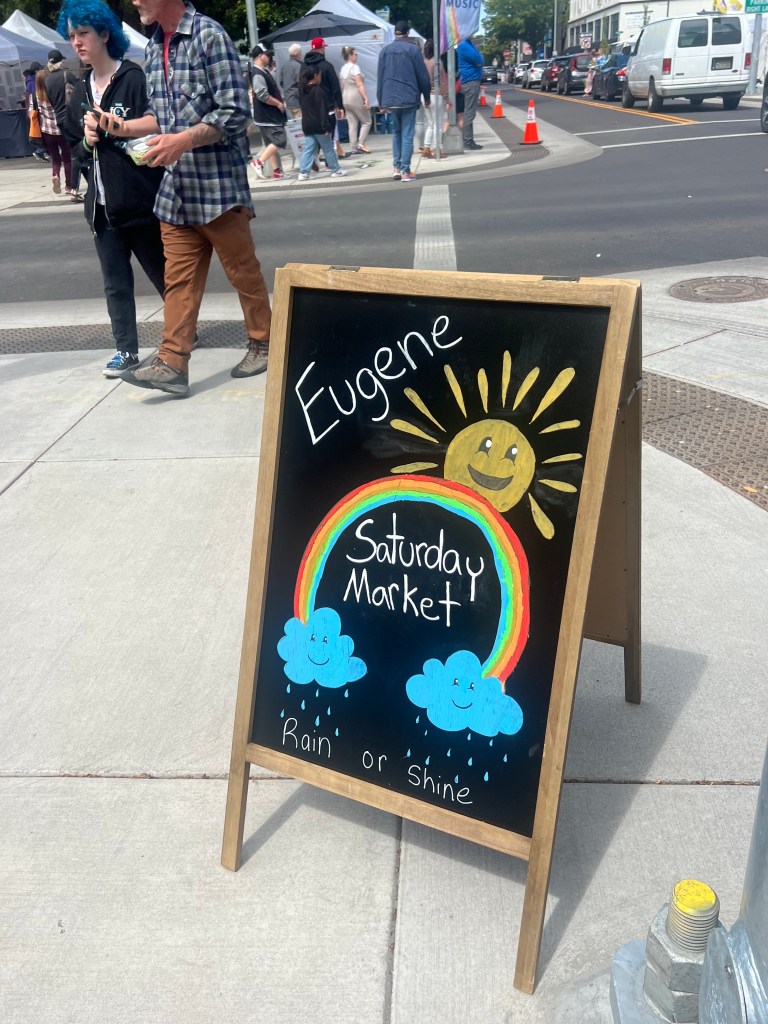 MUSIC
Eugene
Saturday
Market
Rain or Shine